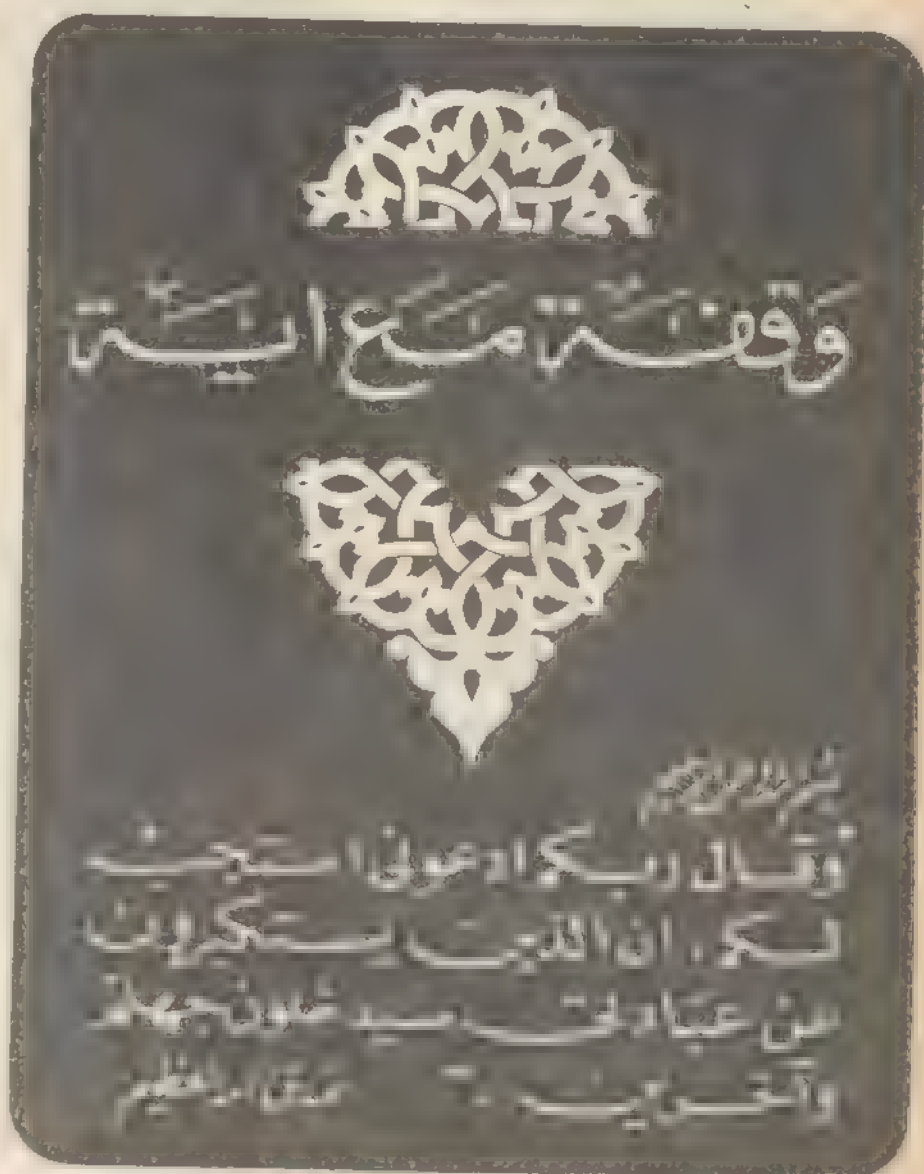 وَقفَة مَع ايَة
بسم الله الرحمن الرحيم
وقال ربكم ادعوني استجب
لكم، ان الذين يستكبرون
عن عبادتي سيدخلون جهنم
داخرين. صدق الله العظيم